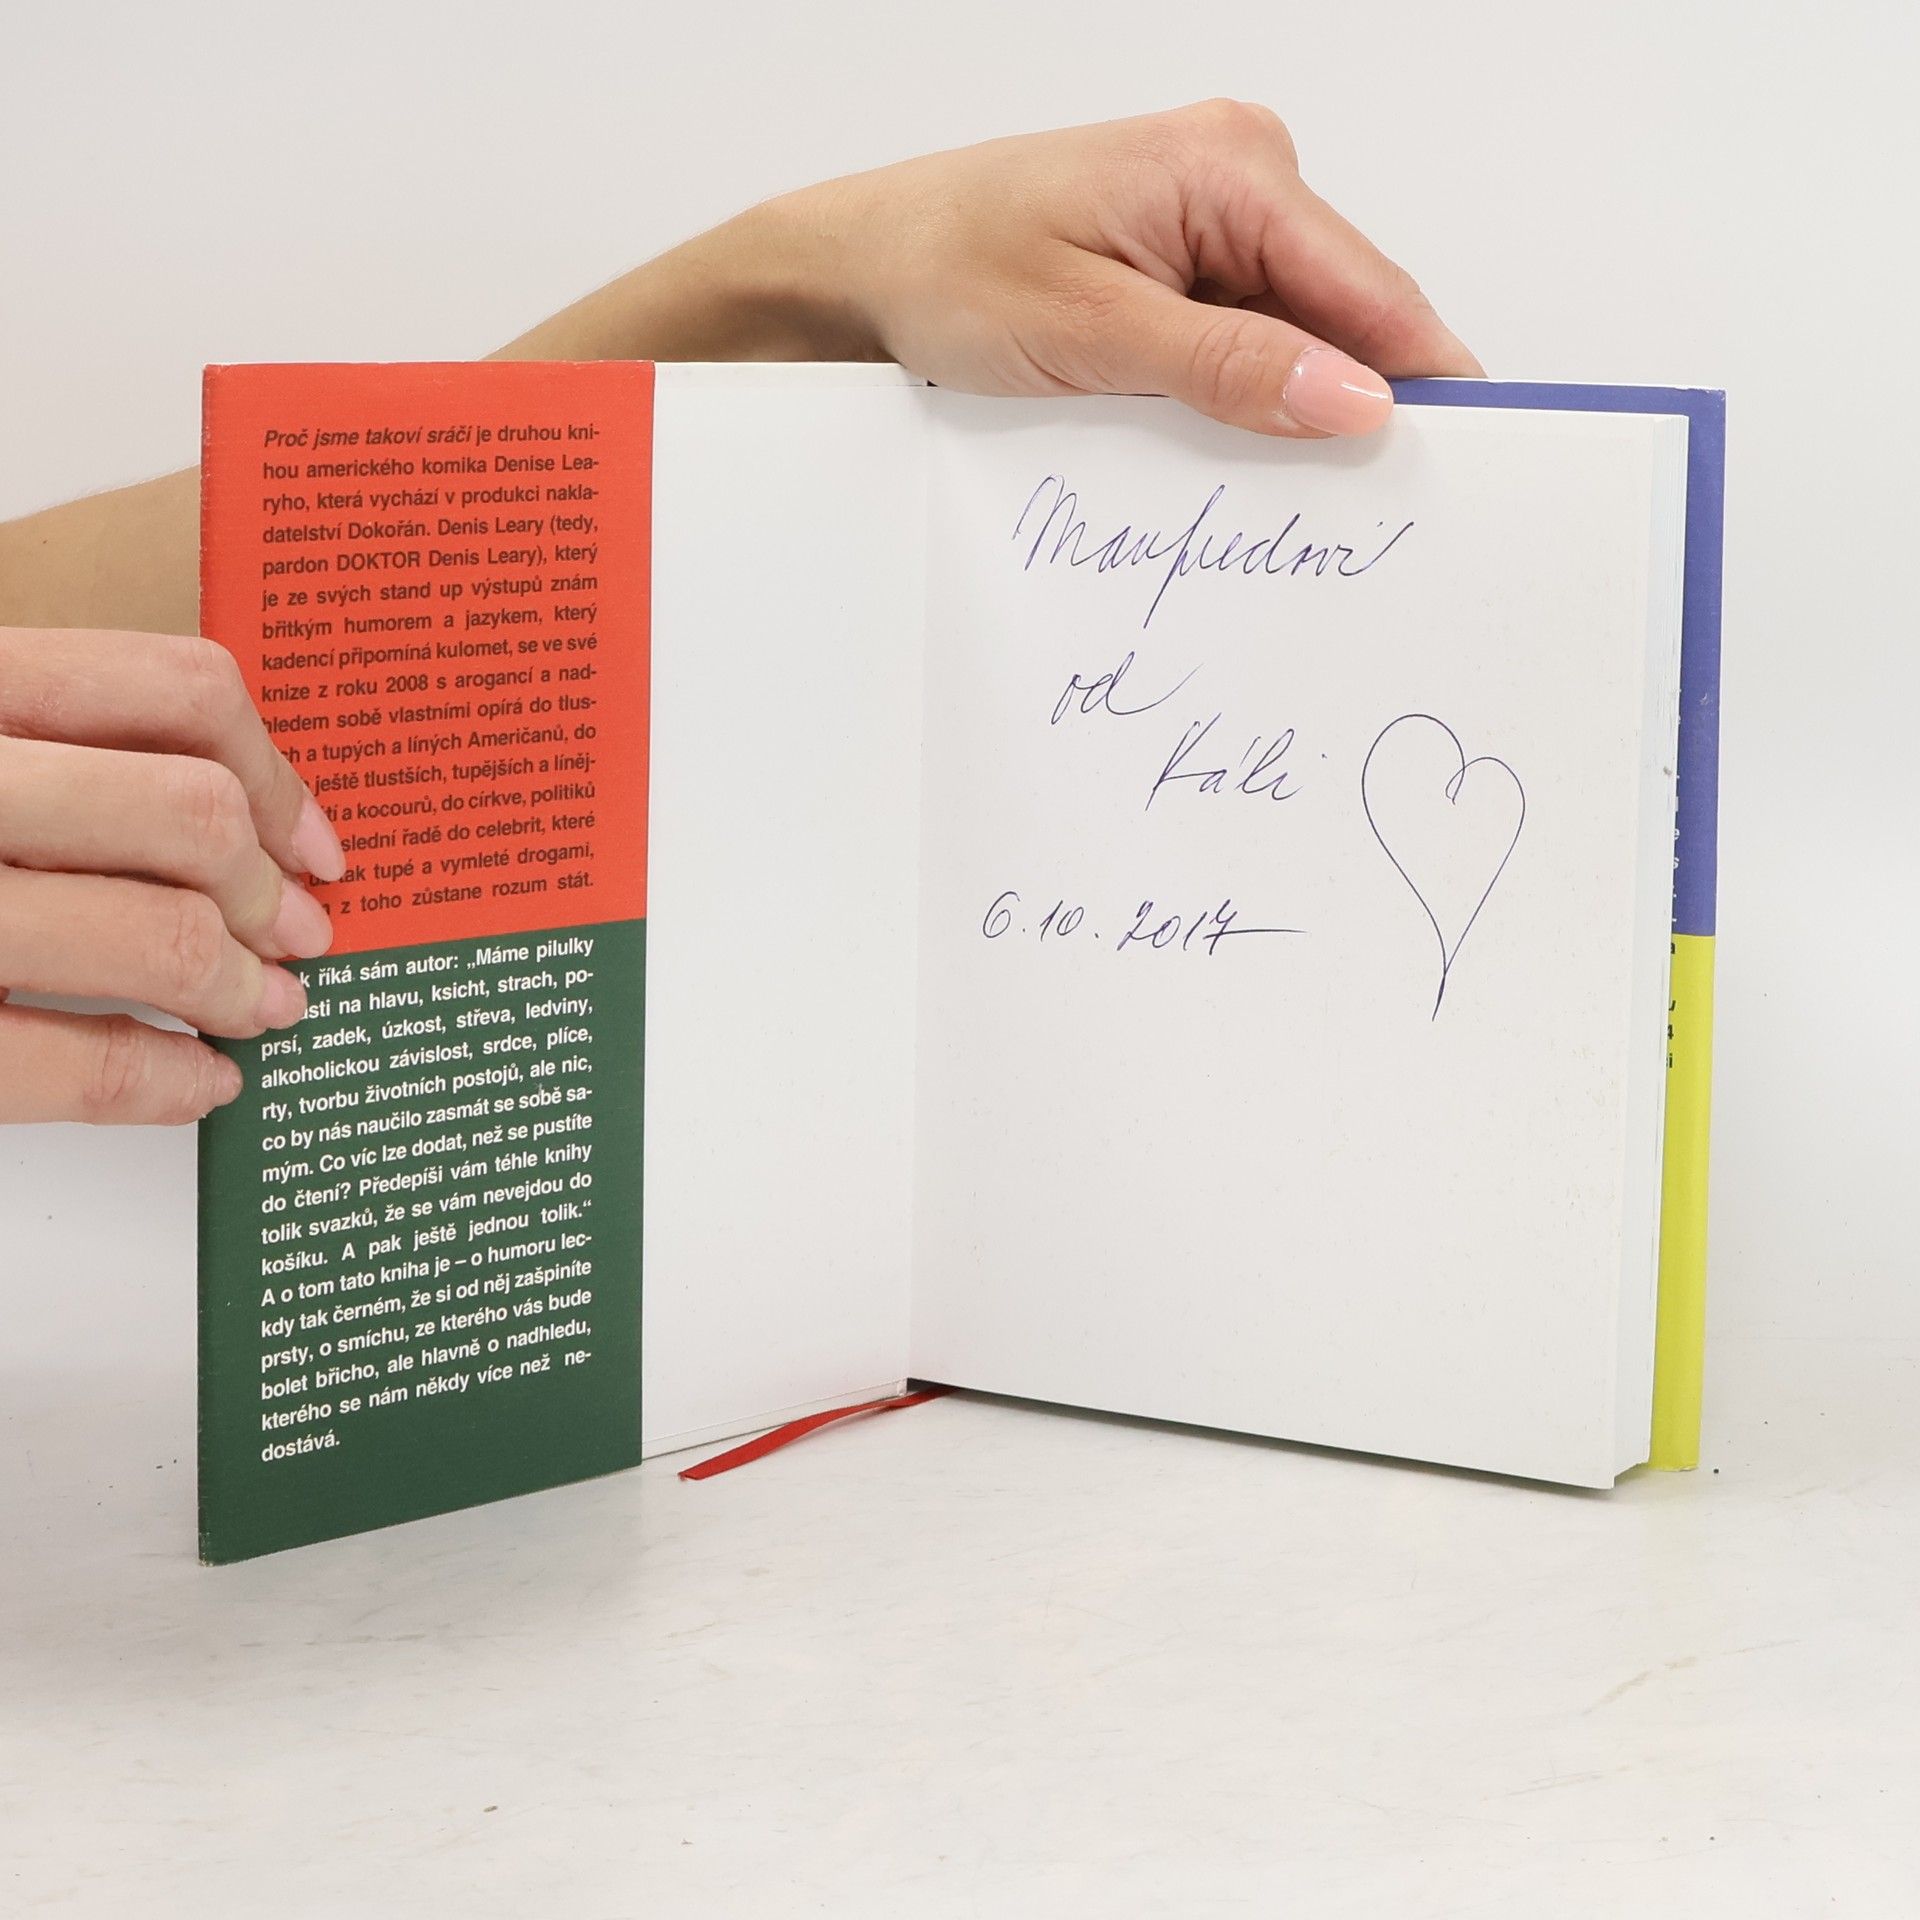 Proč jsme takoví sráči je druhou kni-
hou amerického komika Denise Lea-
ryho, která vychází v produkci nakla-
datelství Dokořán. Denis Leary (tedy,
pardon DOKTOR Denis Leary), který
je ze svých stand up výstupů znám
břitkým humorem a jazykem, který
kadencí připomíná kulomet, se ve své
knize z roku 2008 s arogancí a nad-
hledem sobě vlastními opírá do tlus-
ch a tupých a líných Američanů, do
ještě tlustších, tupějších a líněj-
a kocourů, do církve, politiků
slední řadě do celebrit, které
tak tupé a vymleté drogami,
z toho zůstane rozum stát.
k říká sám autor: „Máme pilulky
sti na hlavu, ksicht, strach, po-
prsí, zadek, úzkost, střeva, ledviny,
alkoholickou závislost, srdce, plíce,
rty, tvorbu životních postojů, ale nic,
co by nás naučilo zasmát se sobě sa-
mým. Co víc lze dodat, než se pustíte
do čtení? Předepíši vám téhle knihy
tolik svazků, že se vám nevejdou do
košíku. A pak ještě jednou tolik.“
A o tom tato kniha je – o humoru lec-
kdy tak černém, že si od něj zašpiníte
prsty, o smíchu, ze kterého vás bude
bolet břicho, ale hlavně o nadhledu,
kterého se nám někdy více než ne-
dostává.
Manfredovi
od
Káči
6.10.2017